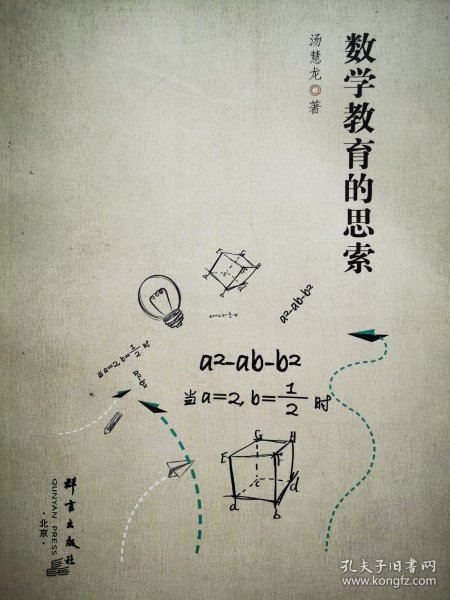 数学教育的思索
汤慧龙◎著
a²-ab-b²
a²-ab-b²
当a=2,b=1/2时
当a=2,b=1/2时
G
H
E
F
d
c
d
b
群言出版社
QUNYAN PRESS
·北京·
孔夫子旧书网
www.kongfz.com